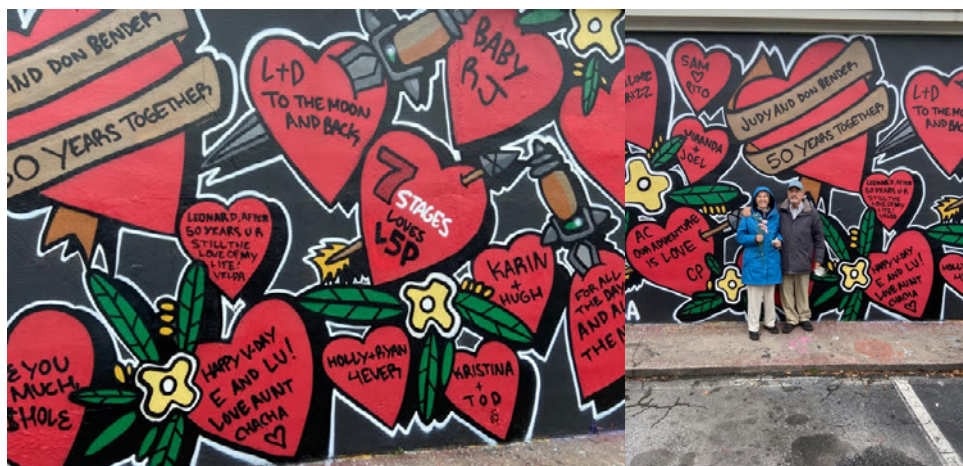 AND DON BENDER
50 YEARS TOGETHER
L+D
TO THE MOON
AND BACK
BABY
R
4
7
STAGES
LOVES
L5P
LEONARD, AFTER
50 YEARS U R
STILL THE
LOVE OF MY
LIFE!
VELDA
KARIN
+
HUGH
FOR ALL
THE DAY
AND A
THE N
E YOU
MUCH,
$HOLE
HAPPY V-DAY
E AND LU!
LOVE AUNT
CHACHA
HOLLY+RYAN
4EVER
KRISTINA
+
TOD
SAM
RITO
JUDY AND DON BENDER
50 YEARS TOGETHER
L+D
TO THE MOON
AND BA
MIRANDA
+
JOEL
LEONARD, AFTER
50 YEARS U R
STILL THE
LOVE OF MY
LIFE!
VELDA
AC
OUR ADVENTURE
IS LOVE
CP
HAPPY V-DAY
E AND LU!
LOVE AUNT
CHACHA
HOLLY
4
A